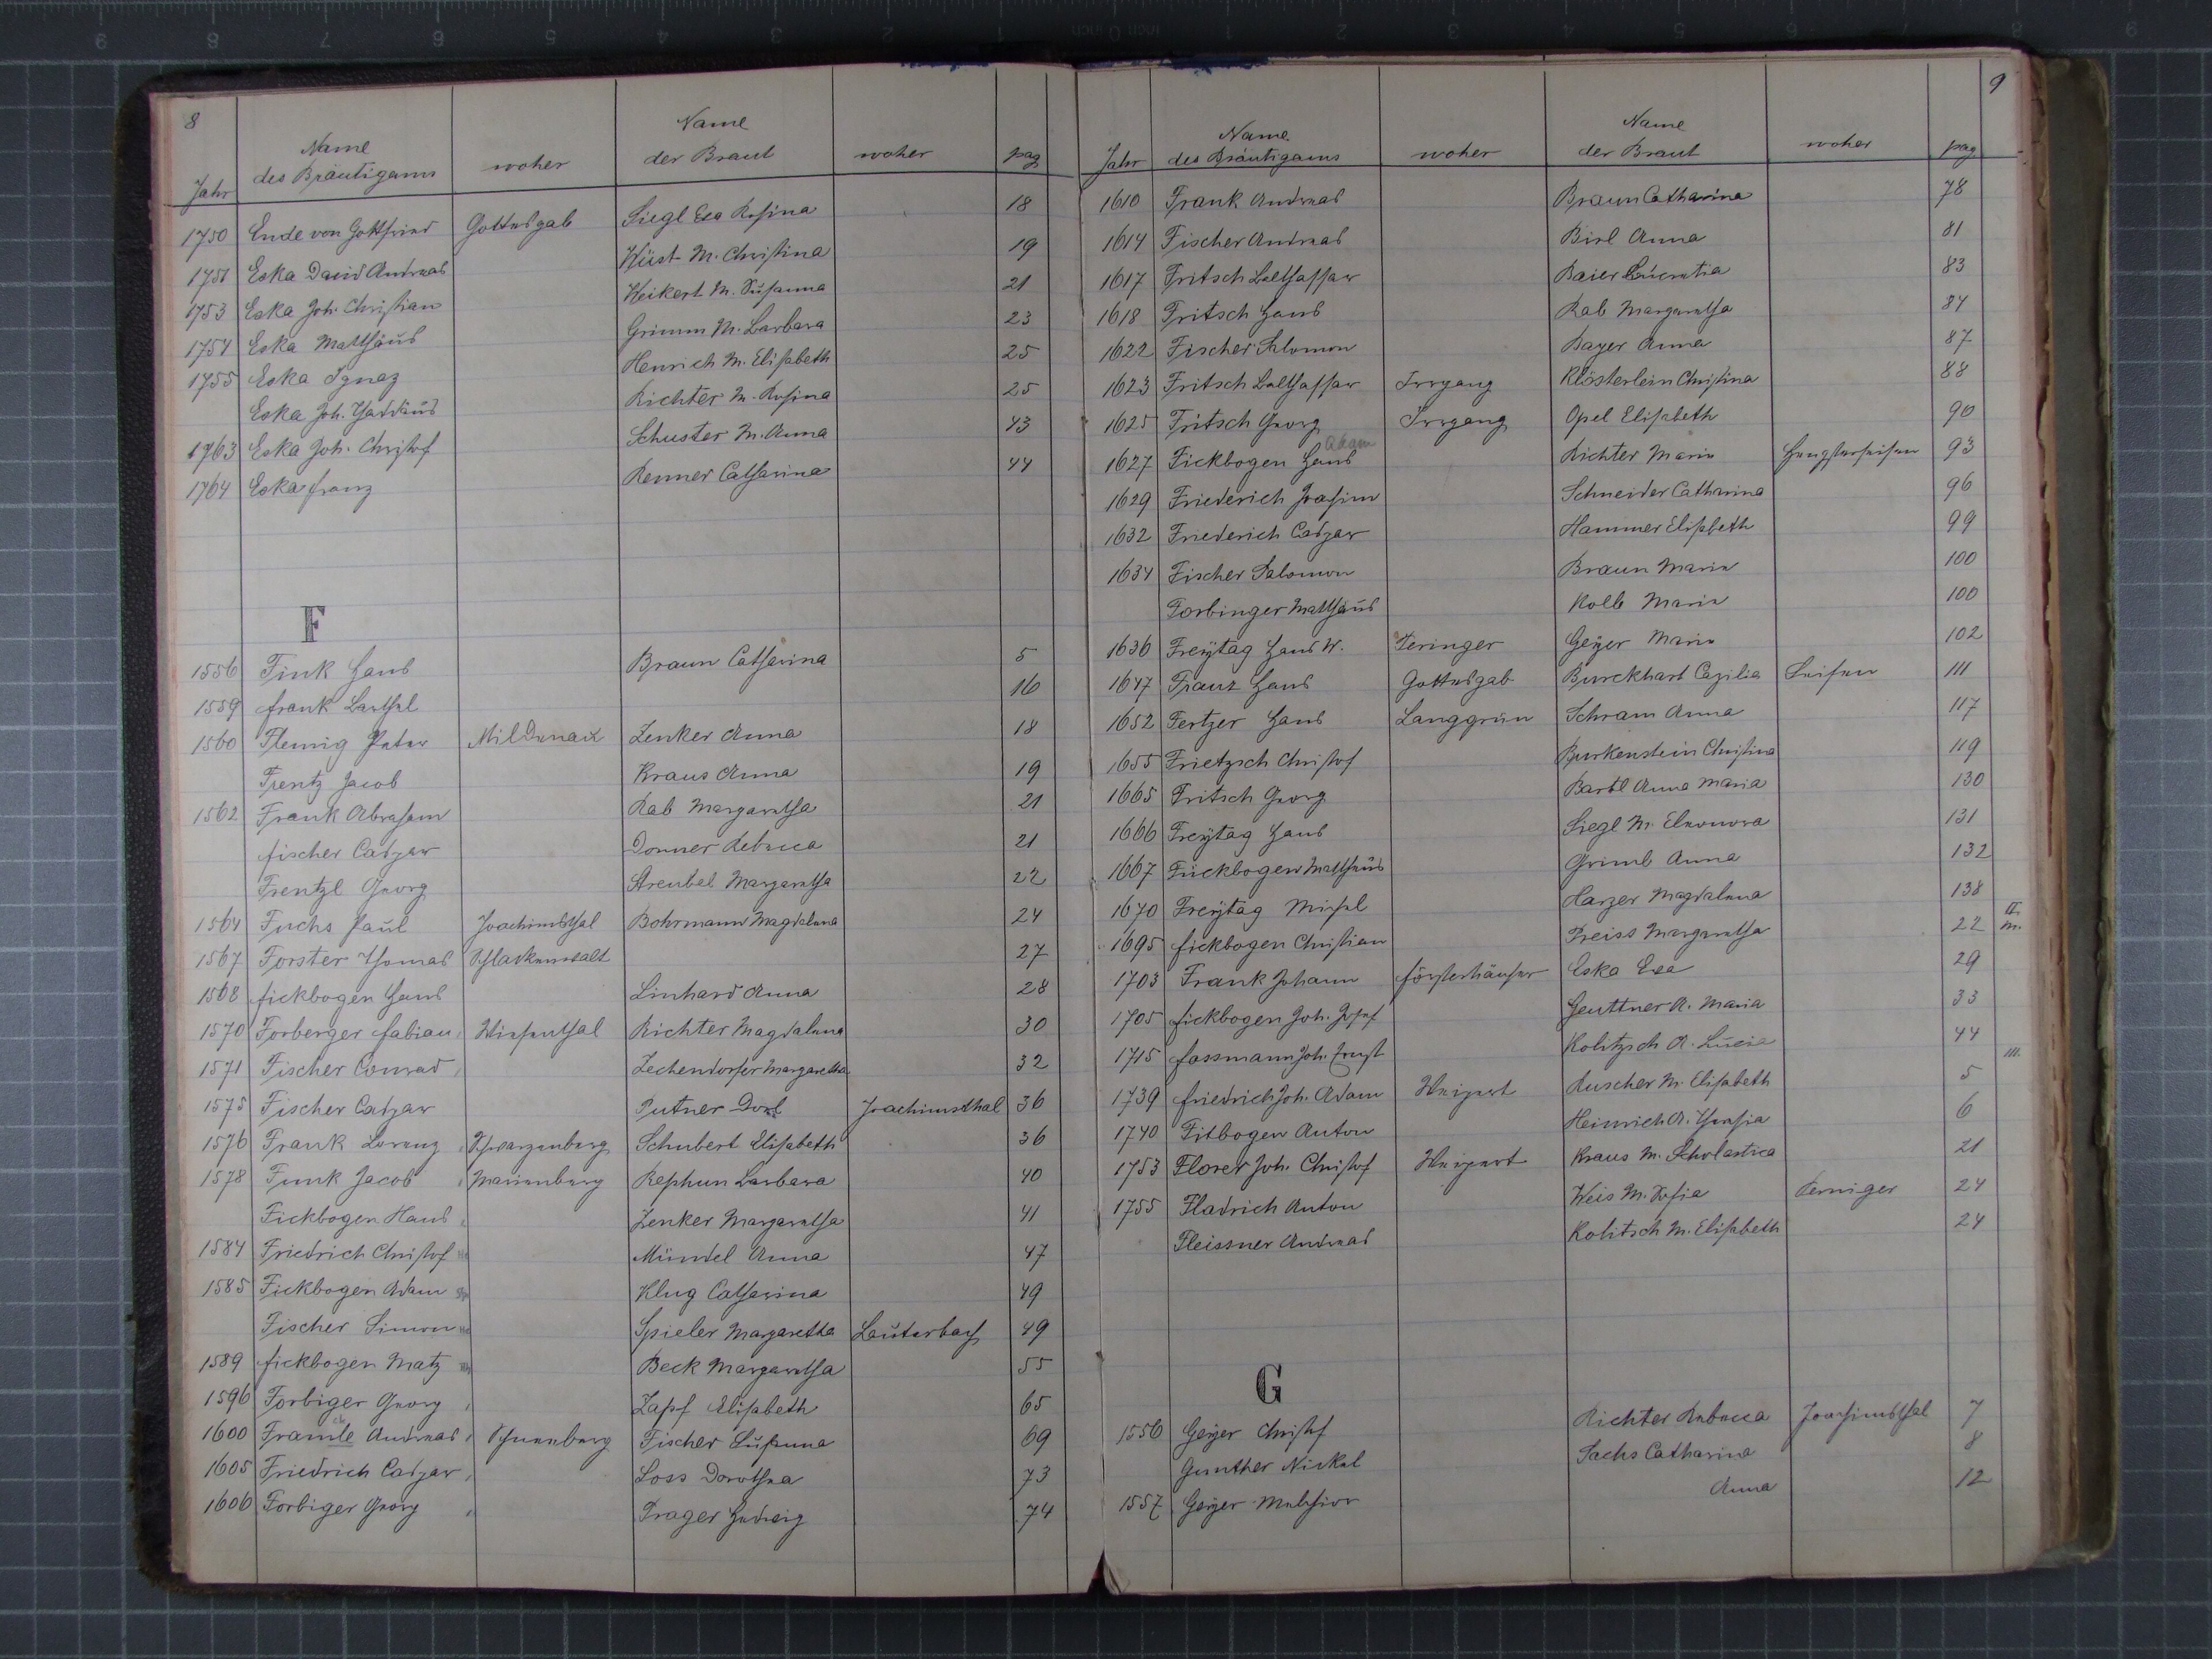 8
Jahr Name des Bräutigams woher Name der Braut woher pag
1750 Ende von Gottfried Gottesgab Siegl Eva Rosina 18
1751 Eska David Andreas Wüst M. Christina 19
1753 Eska Joh. Christian Weikert M. Susanna 21
1754 Eska Matthäus Grimm M. Barbara 23
1755 Eska Ignaz Henrich M. Elisabeth 25
Eska Joh. Thaddäus Richter M. Rosina 25
1763 Eska Joh. Christof Schuster M. Anna 43
1764 Eska Franz Renner Catharina 44
F
1556 Fink Hans Braun Catharina 5
1559 Frank Barthel 16
1560 Flemig Peter Mildenau Zenker Anna 18
Frentz Jacob Kraus Anna 19
1562 Frank Abraham Rab Margaretha 21
Fischer Caspar Donner Rebecca 21
Frentzl Georg Streubel Margaretha 22
1564 Fuchs Paul Joachimsthal Bohrmann Magdalena 24
1567 Forster Thomas Schlackenwalt 27
1568 Fickbogen Hans Linhard Anna 28
1570 Forberger Fabian Wiesenthal Richter Magdalena 30
1571 Fischer Conrad Zechendorfer Margaretha 32
1575 Fischer Caspar Putner Dorl Joachimsthal 36
1576 Frank Lorenz Schwarzenberg Schubert Elisabeth 36
1578 Funk Jacob Marienburg Rephun Barbara 40
Fickbogen Hans Zenker Margaretha 41
1584 Friedrich Christof Mündel Anna 47
1585 Fickbogen Adam Klug Catharina 49
Fischer Simon Spieler Margaretha Lauterbach 49
1589 Fickbogen Matz Beck Margaretha 55
1596 Forbiger Georg Zapf Elisabeth 65
1600 Andreas Fischer Susanna 69
1605 Friedrich Caspar Loss Dorothea 73
1606 Forbiger Georg Prager Hedwig 74
9
Jahr Name des Bräutigams woher Name der Braut woher pag
1610 Frank Andreas Braun Catharina 78
1614 Fischer Andreas Birl Anna 81
1617 Fritsch Balthassar Baier Lucretia 83
1618 Fritsch Hans Rab Margaretha 84
1622 Fischer Salomon Bayer Anna 87
1623 Fritsch Balthassar Irrgang Klösterlein Christina 88
1625 Fritsch Georg Irrgang Opel Elisabeth 90
1627 Fickbogen Hans Adam Richter Maria Hengstererben 93
1629 Friederich Joachim Schneider Catharina 96
1632 Friederich Caspar Hammer Elisabeth 99
1634 Fischer Salomon Braun Maria 100
Forbinger Matthäus Kolb Maria 100
1636 Freÿtag Hans W. Peringer Geÿer Maria 102
1647 Franz Hans Gottesgab Burckhart Cazilia Seifen 111
1652 Fertzer Hans Langgrün Schram Anna 117
1655 Frietzsch Christof Burkenstein Christina 119
1665 Fritsch Georg Bartl Anna Maria 130
1666 Freÿtag Hans Siegl M. Eleonora 131
1667 Fückbogen Matthäus Grimb Anna 132
1670 Freÿtag Michel Harzer Magdalena 138
1695 Fickbogen Christian Preiss Margaretha 22 II.
1703 Frank Johann Försterhäuser Eska Eva 29
1705 Fickbogen Joh. Josef Geuttner A. Maria 33
1715 Fassmann Joh. Ernst Kolitzsch A. Lucia 44
III.
1739 Friedrich Joh. Adam Weipert Ruscher M. Elisabeth 5
1740 Fitbogen Anton Heinrich A. Theresia 6
1753 Florer Joh. Christof Weipert Kraus M. Scholastica 21
1755 Fladrich Anton Weis M. Sofia Perniger 24
Fleissner Andreas Kolitsch M. Elisabeth 24
G
1556 Geÿer Christof Richter Rebecca Joachimsthal 7
Gunther Nickel Sachs Catharina 8
1557 Geÿer Melchior Anna 12